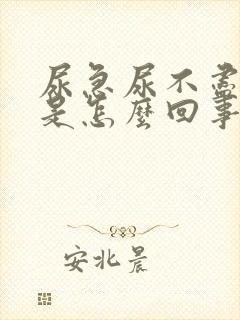 尿急尿不盡
是怎麼回事
安北晨